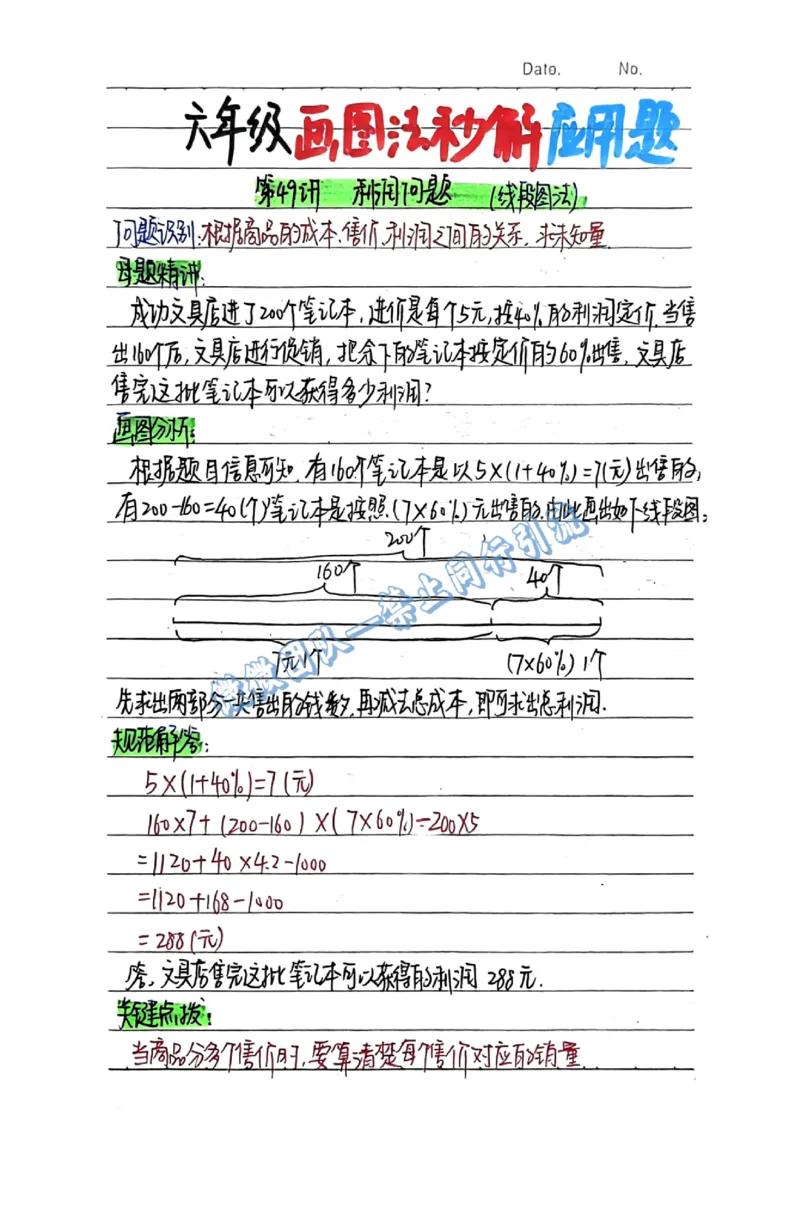 Date. No.
六年级画图法秒解应用题
第49讲 利润问题 (线段图法)
问题识别:根据商品的成本、售价、利润之间的关系,求未知量.
母题精讲:
成功文具店进了200个笔记本,进价是每个5元,按40%的利润定价.当售
出160个后,文具店进行促销,把余下的笔记本按定价的60%出售,文具店
售完这批笔记本可以获得多少利润?
画图分析:
根据题目信息可知,有160个笔记本是以5×(1+40%)=7(元)出售的,
有200-160=40(个)笔记本是按照(7×60%)元出售的,由此画出如下线段图:
200个
160个 40个
7元1个 (7×60%)1个
微微团队一禁止同行引流
先求出两部分一共售出的钱数,再减去总成本,即可求出总利润.
规范解答:
5×(1+40%)=7(元)
160×7+(200-160)×(7×60%)-200×5
=1120+40×4.2-1000
=1120+168-1000
=288(元)
答:文具店售完这批笔记本可以获得的利润288元.
关键点拨:
当商品分多个售价时,要算清楚每个售价对应的销量.